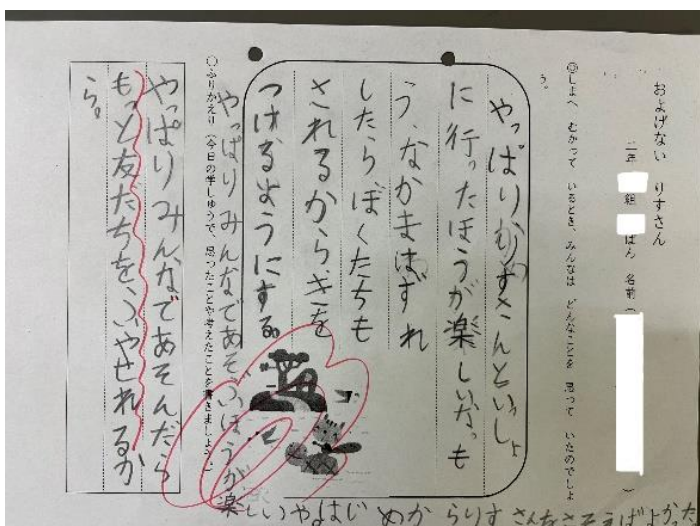 およげない りすさん
二年 組 ばん 名前（
◎しまへ むかって いるとき、みんなは どんなことを 思って いたのでしょ
う。
やっぱりりすさんといっしょ
に行ったほうが楽しいなっも
う、なかまはずれ
したら、ぼくたちも
されるから、きを
つけるようにする。
やっぱりみんなであそぶほうが楽しいやはじめからりすさんをさそえばよかった
○ふりかえり（今日の学しゅうで、思ったことや考えたことを書きましょう。）
やっぱりみんなであそんだら
もっと友だちをふやせれるか
ら。